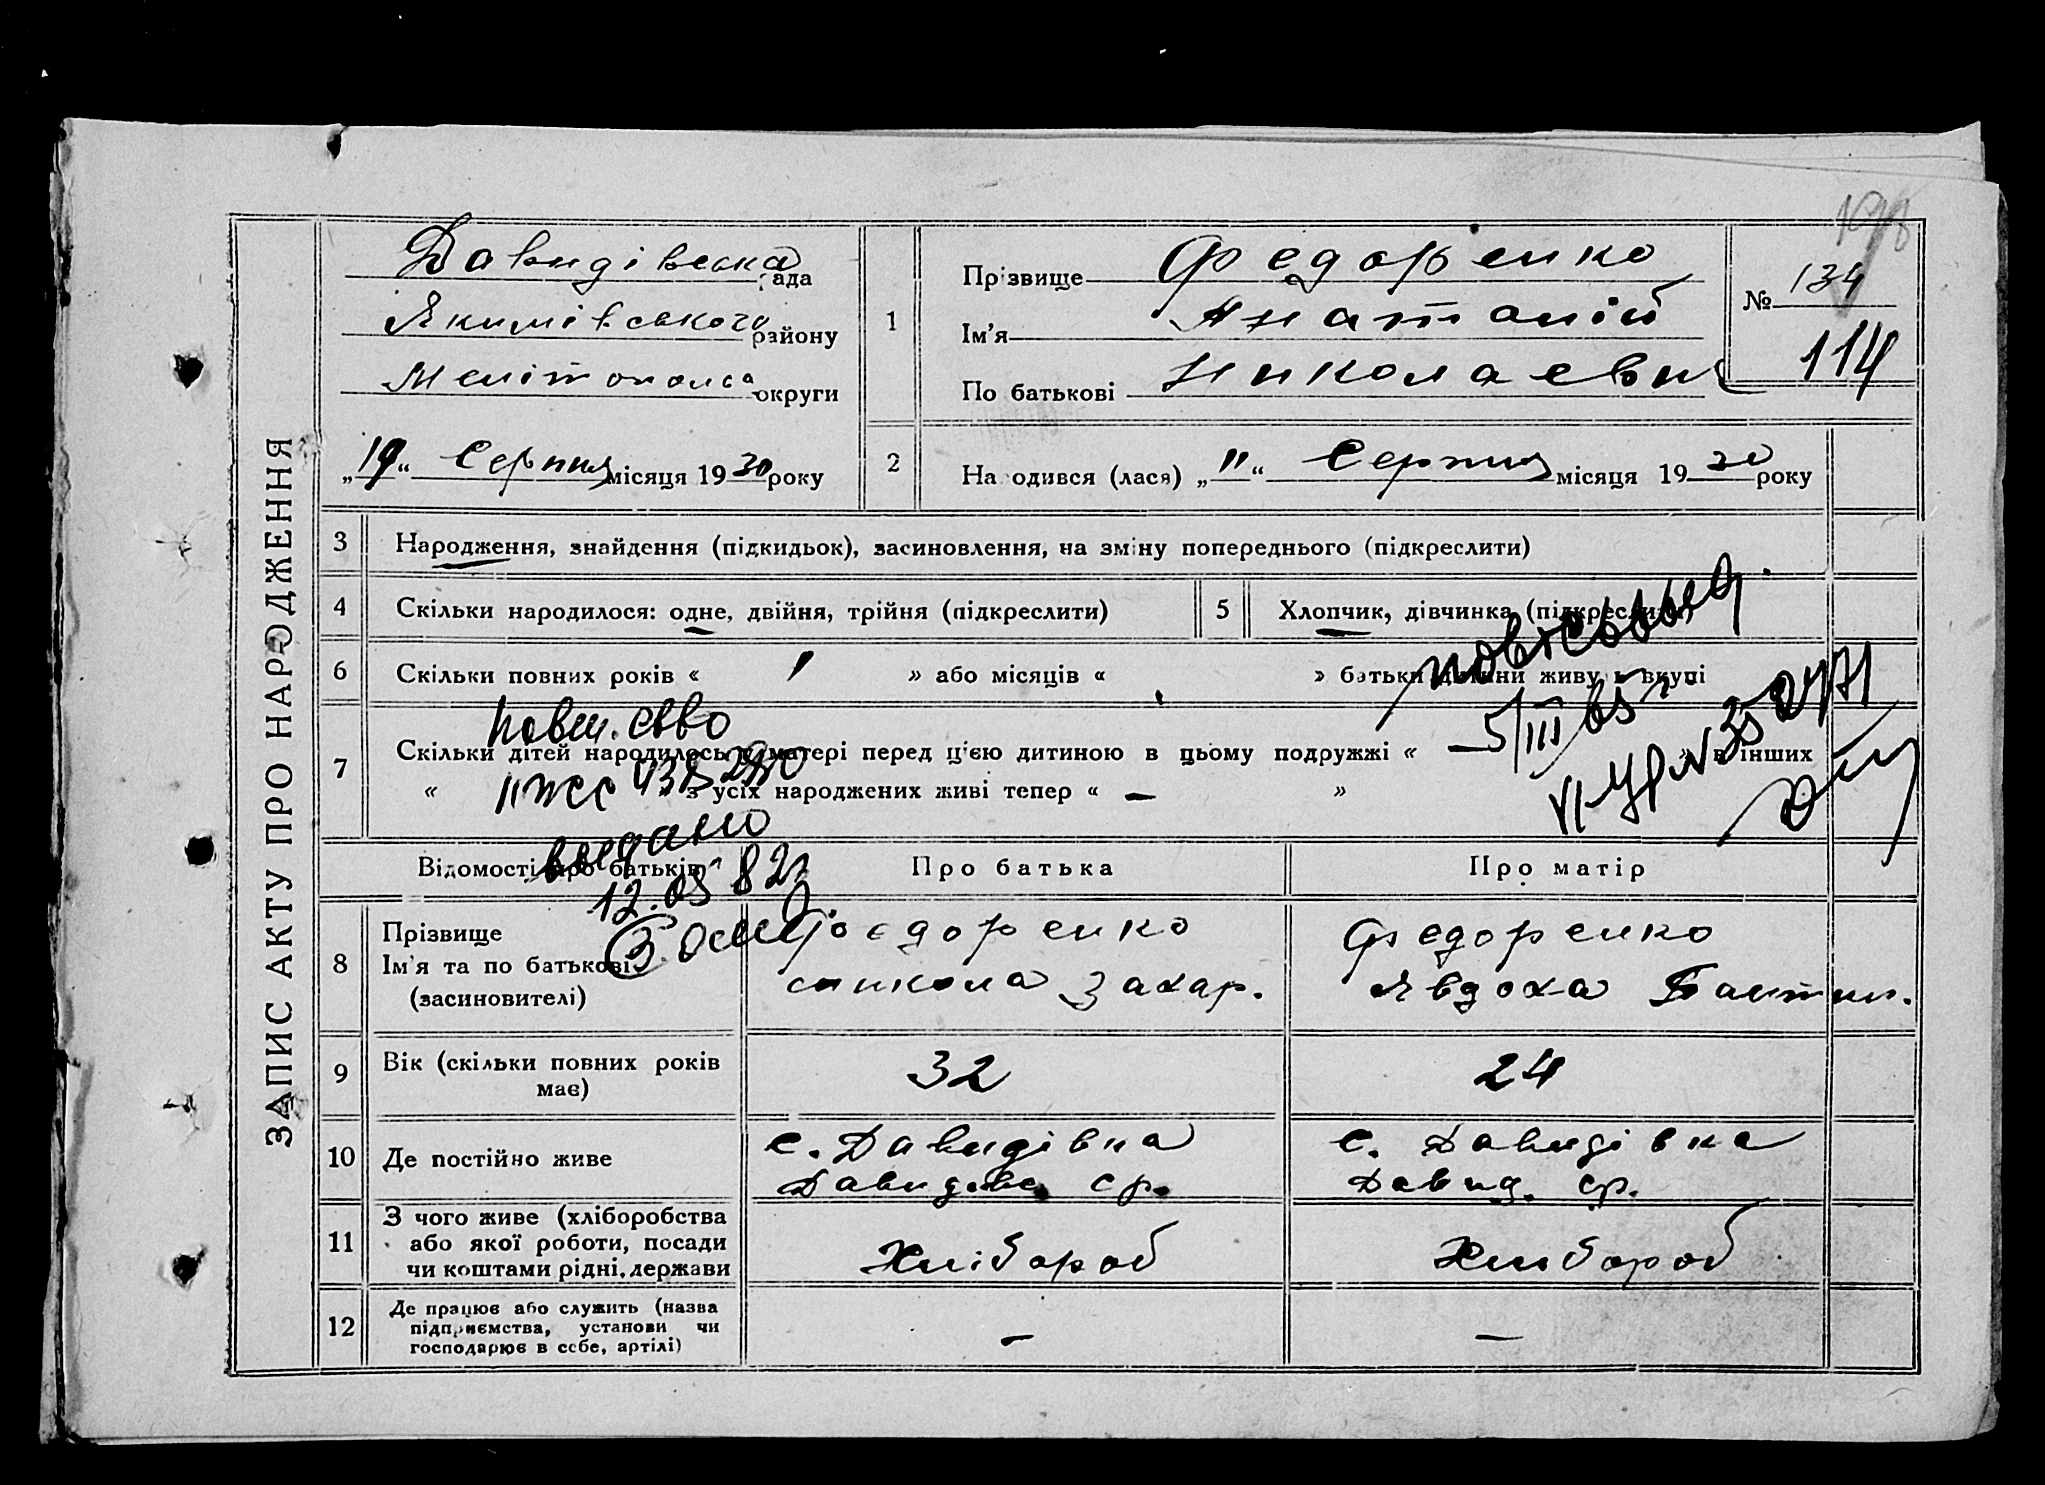 ЗАПИС АКТУ ПРО НАРОДЖЕННЯ
Давидівська рада
Якимівського району
Мелітопольса округи
„19“ Серпня місяця 1930 року
1
Прізвище Федоренко
Ім'я Анатолій
По батькові Николаевич
№ 134
114
2
Народився (лася) „11“ Серпня місяця 1930 року
3 Народження, знайдення (підкидьок), засиновлення, на зміну попереднього (підкреслити)
4 Скільки народилося: одне, двійня, трійня (підкреслити)
5 Хлопчик, дівчинка (підкреслити)
6 Скільки повних років « » або місяців « » батьки дитини живуть вкупі
7 Скільки дітей народилось у матері перед ц'єю дитиною в цьому подружжі « — » в інших
« з усіх народжених живі тепер « — »
5/III 65 г.
повт. св-во
выдано
12.05 82г.
Відомості про батьків
Про батька
Про матір
8 Прізвище
Ім'я та по батькові
(засиновителі)
Федоренко
Микола Захар.
Федоренко
Явдоха Пантил.
9 Вік (скільки повних років має)
32
24
10 Де постійно живе
с. Давидівка
Давидівс. ср.
с. Давидівка
Давид. ср.
11 З чого живе (хліборобства
або якої роботи, посади
чи коштами рідні, держави
Хлібороб
Хлібороб
12 Де працює або служить (назва
підприємства, установи чи
господарює в себе, артілі)
—
—